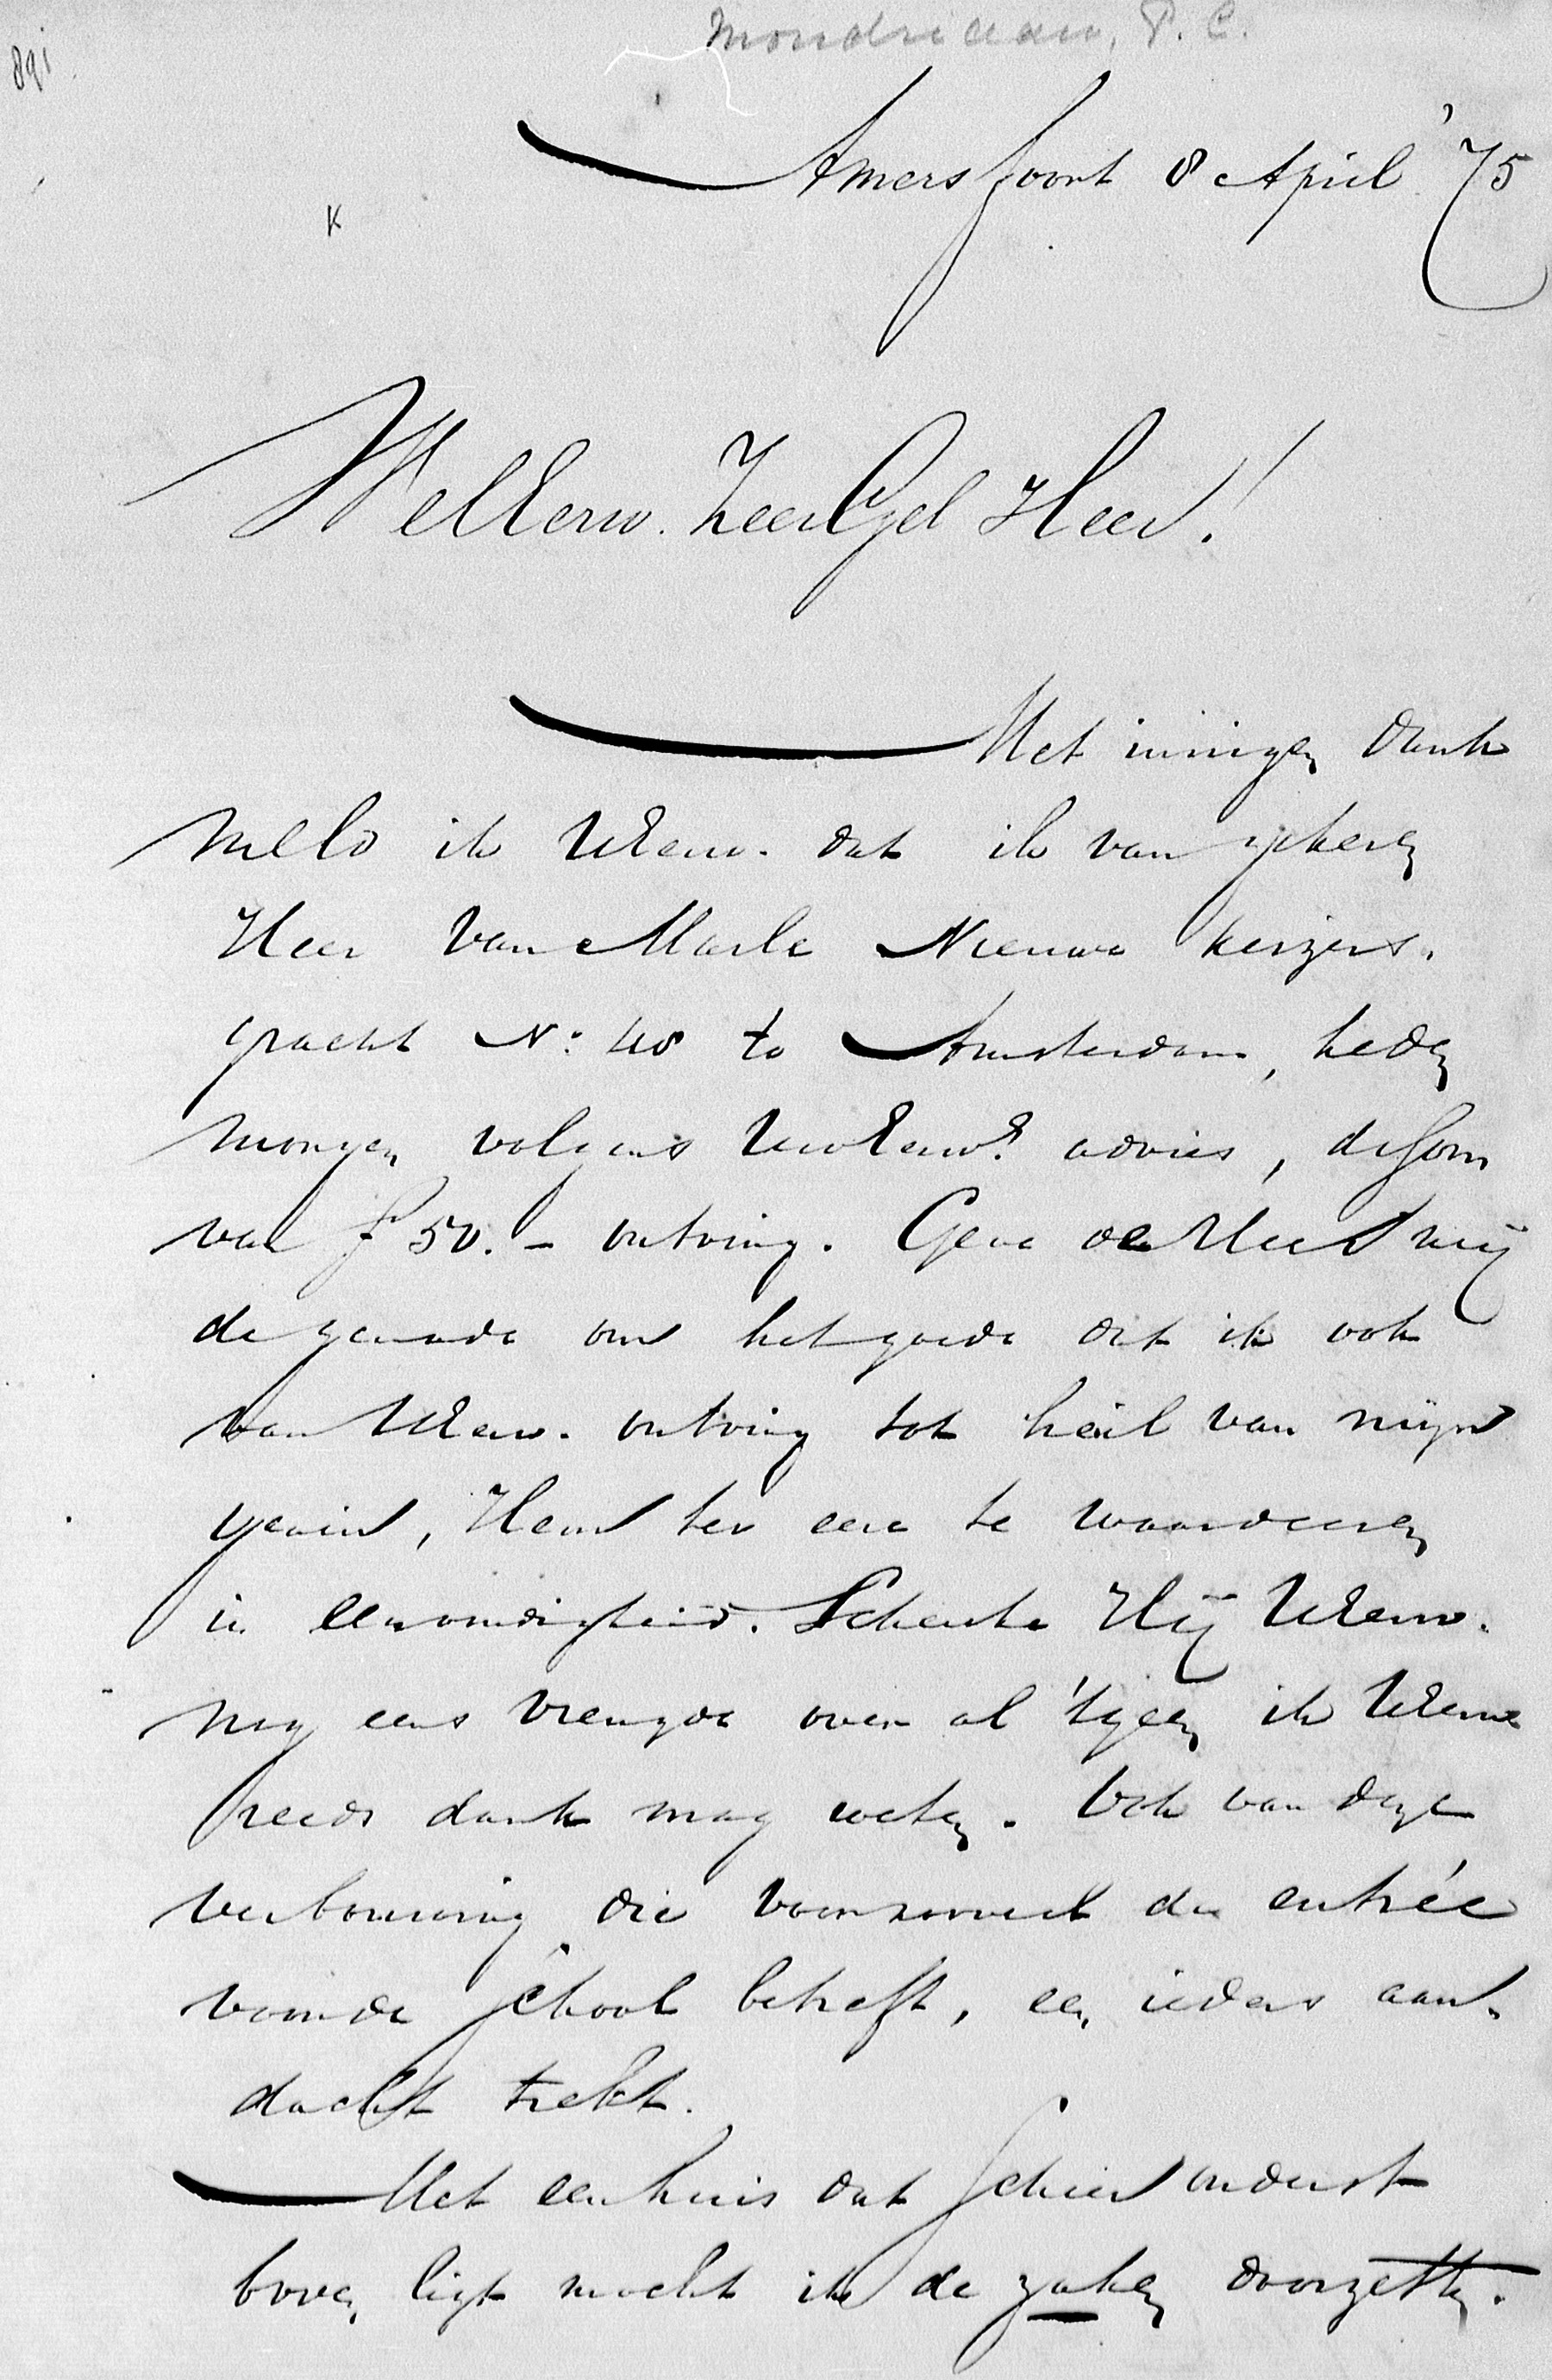 Mondriaan, P. C.
891
Amersfoort 8 April '75
K
WelEerw. ZeerGel Heer!
Met innigen dank
meld ik UEerw. dat ik van zekeren
Heer Van Marle Nieuwe Keizers-
gracht No: 48 te Amsterdam, heden
morgen volgens UwEerws advies, de som
van f 50.- ontving. Geve de Heer mij
de genade om het goede dat ik ook
van UEerw. ontving tot heil van mijn
gezin, Hem ter eere te waardeeren
in eenvoudigheid. Schenke Hij UEerw.
nog eens vreugde over al 'tgeen ik UEerw
reeds dank mag weten. Ook van deze
verbouwing die voorzooveel de entrée
voor de school betreft, een ieders aan-
dacht trekt.
Met een huis dat schier onderst
boven ligt mocht ik de zaken doorzetten.